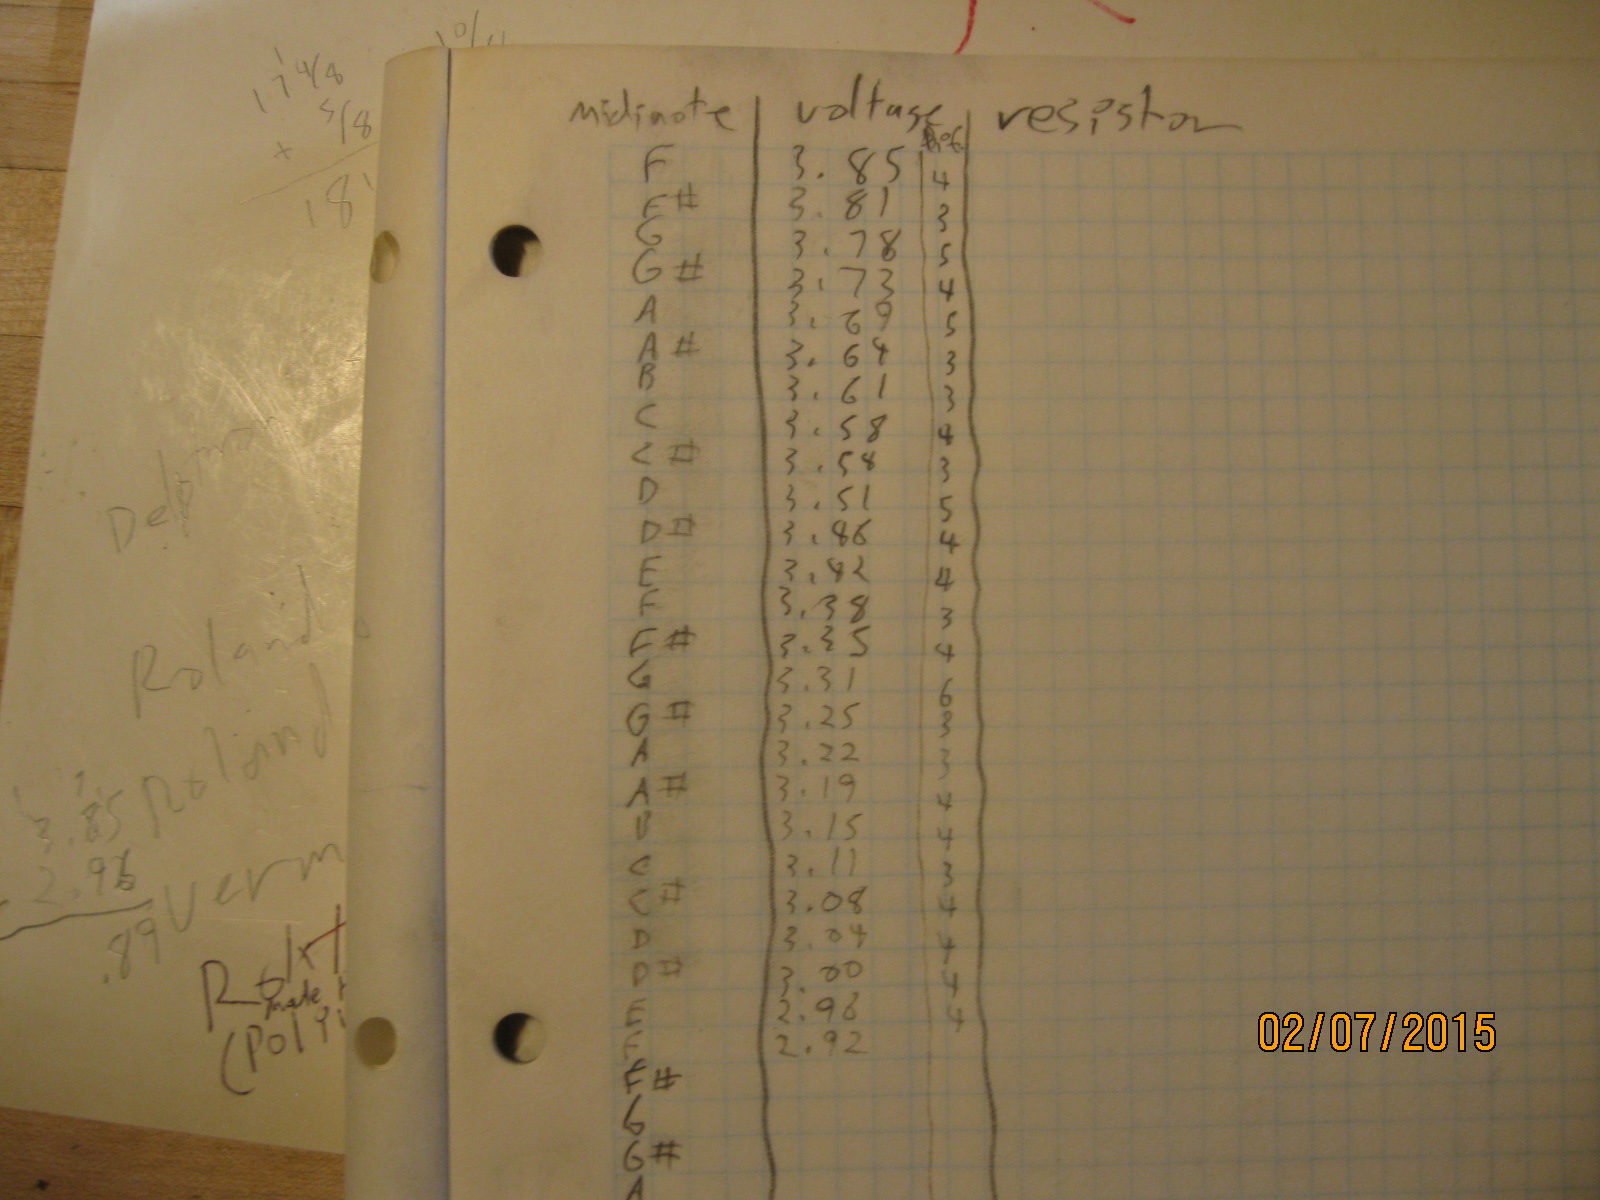 midinote voltage Dif. resistor
F 3.85 4
F# 3.81 3
G 3.78 5
G# 3.73 4
A 3.69 5
A# 3.64 3
B 3.61 3
C 3.58 4
C# 3.54 3
D 3.51 5
D# 3.46 4
E 3.42 4
F 3.38 3
F# 3.35 4
G 3.31 6
G# 3.25 3
A 3.22 3
A# 3.19 4
B 3.15 4
C 3.11 3
C# 3.08 4
D 3.04 4
D# 3.00 4
E 2.96 4
F 2.92
F#
G
G#
A
17 4/8
5/8
+
18
10/11
Roland
Roland
3.85
2.96
.89
Verm
(Poly
02/07/2015